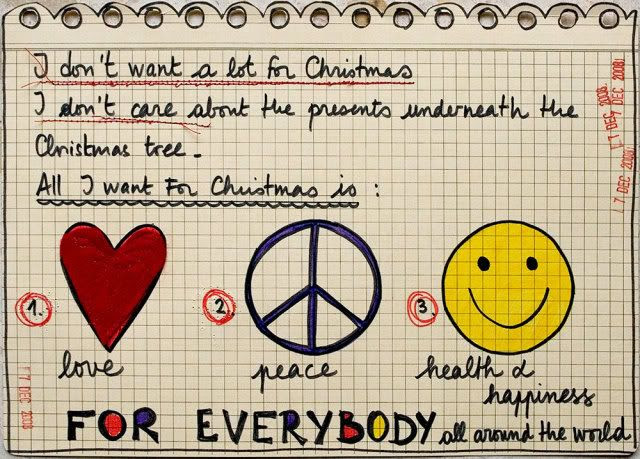 I don't want a lot for Christmas
I don't care about the presents underneath the
Christmas tree.
All I want For Christmas is :
1.
2.
3.
love
peace
health &
happiness
FOR EVERYBODY all around the world
17 DEC 2008
7 DEC 2008
17 DEC 2008
17 DEC 2008